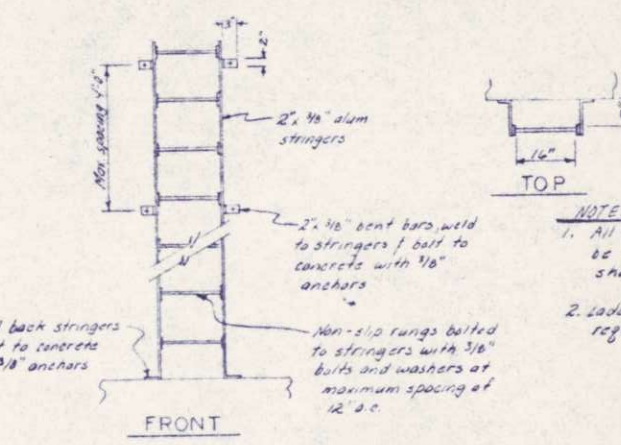 3"
2"
Max spacing 4'-0"
2" x 3/8" alum
stringers
2" x 3/8" bent bars, weld
to stringers & bolt to
concrete with 3/8"
anchors
back stringers
to concrete
3/8" anchors
Non-slip rungs bolted
to stringers with 3/8"
bolts and washers at
maximum spacing of
12" o.c.
FRONT
16"
TOP
NOTE
1. All
be
2.